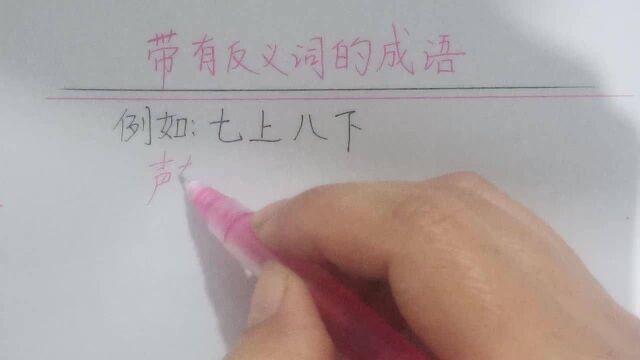 带有反义词的成语
例如:七上八下
声